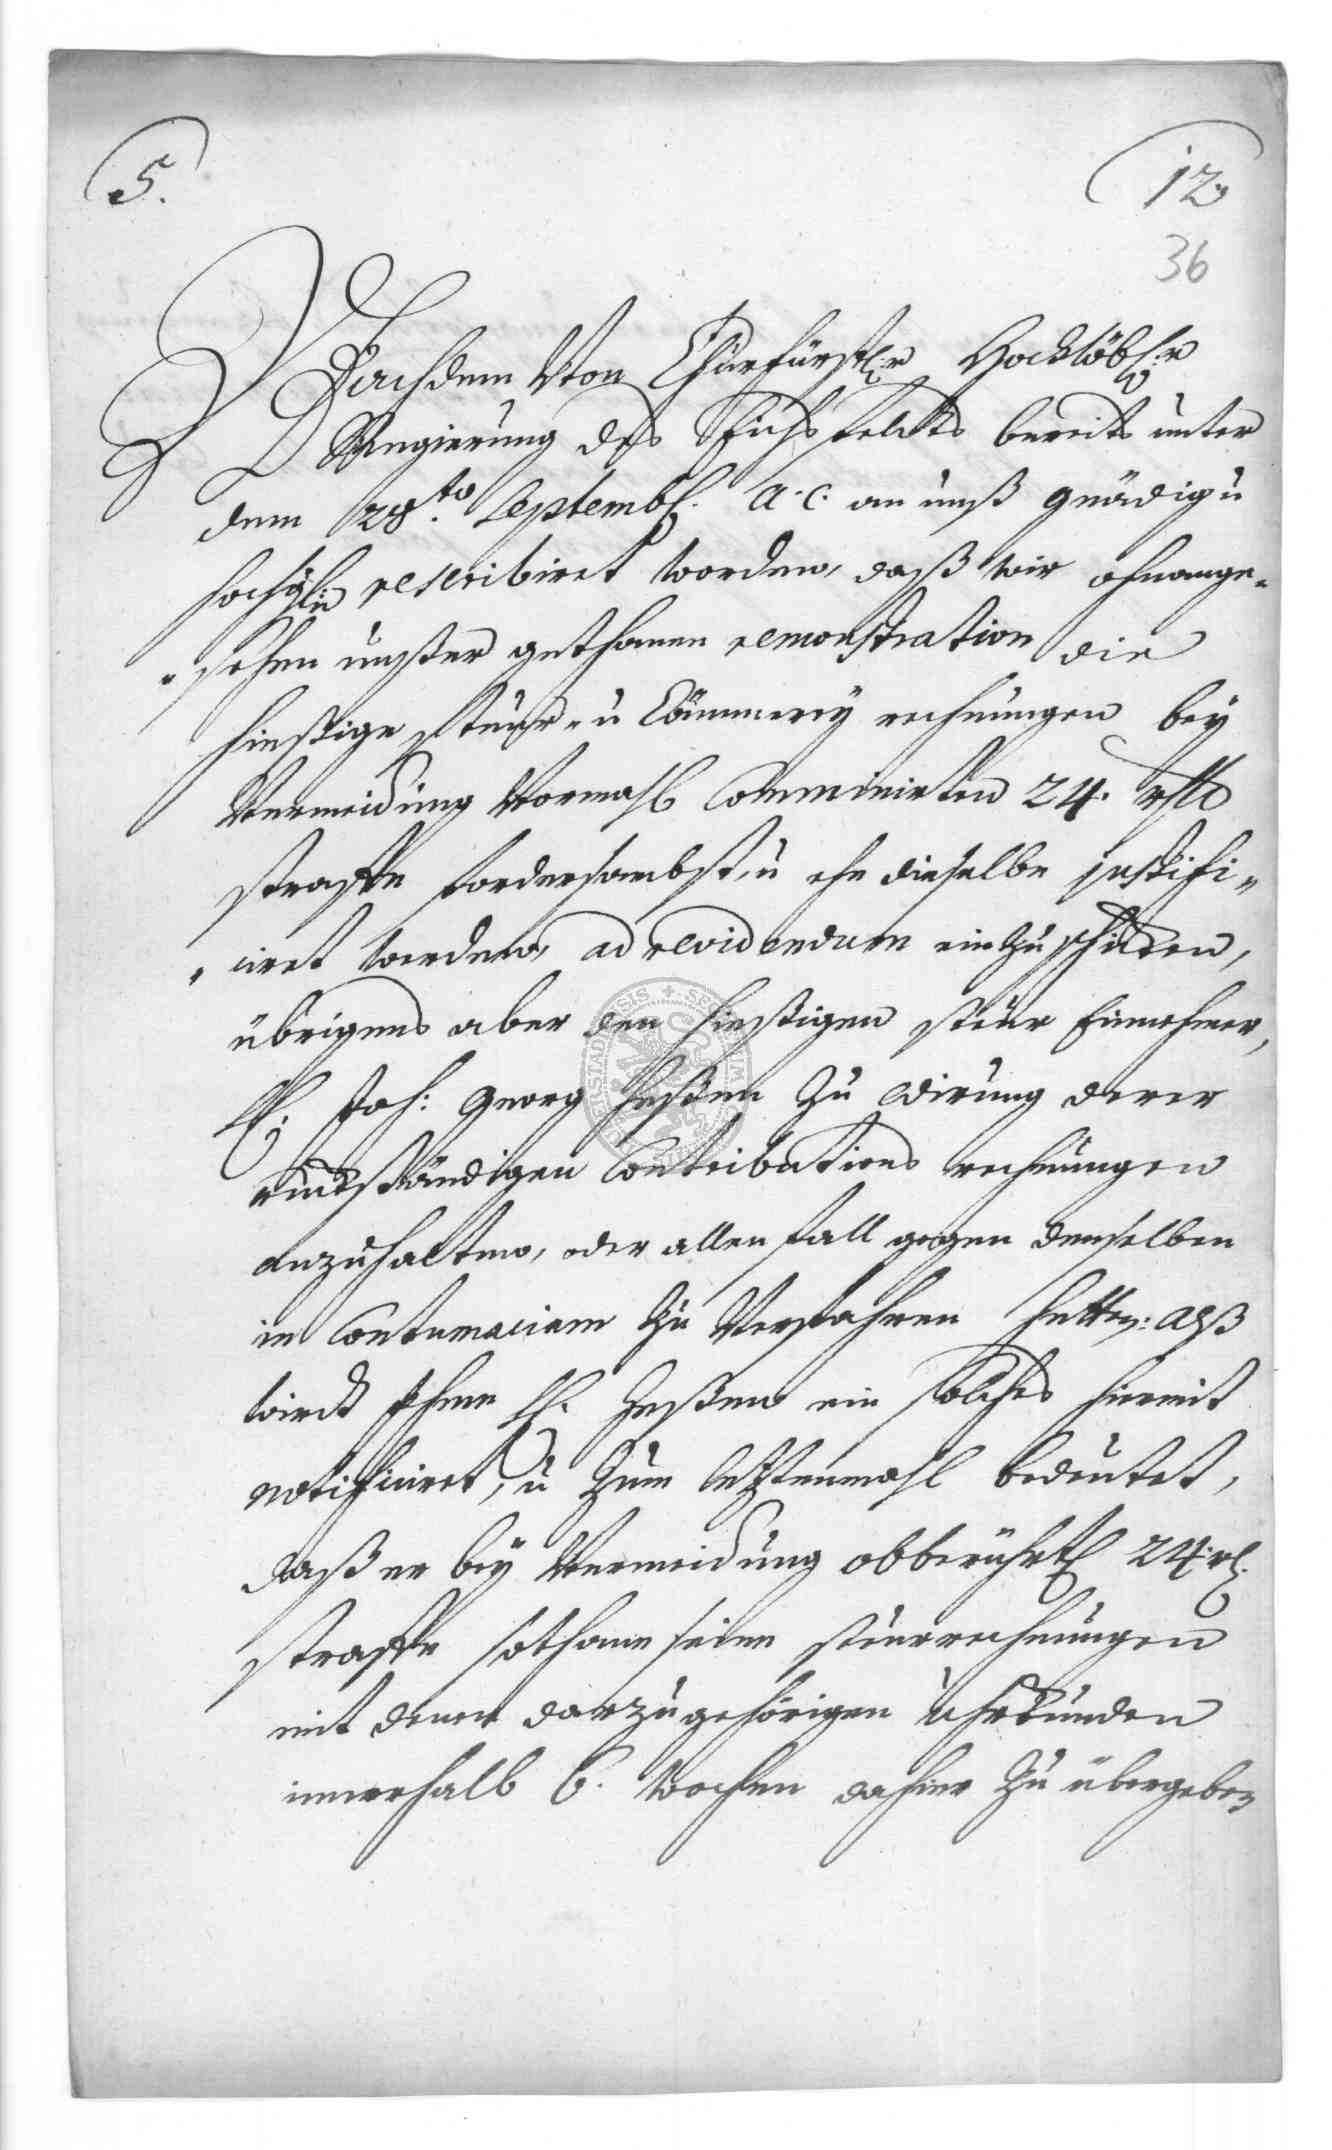 5.
12
36
Nachdem Von Churfürstl:r Hochlöbl:r
Regierung des Eichsfeldts bereits unter
dem 28.to Septembr. a. c. an unß gnädig u
hochgl: rescribiret worden, daß wir ohnange„
„sehen unßer gethanen remonstration die
hießige steur- u Cämmerey rechnungen bey
Vermeidung Vormahls Comminirten 24. rthlr
straffe fordersambst, u ehe dieselbe justifi„
„ciret werden, ad revidendum einzuschicken,
übrigens aber den hießigen steur Einnehmer,
H. Joh: Georg Heßen zu edirung derer
rückständigen Contributions rechnungen
anzuhalten, oder allenfall gegen denselben
in Contumaciam zu Verfahren hetten: Alß
wirdt Ihme H. Heßen ein solches hiermit
notificiret, u zum letztenmahl bedeutet,
daß er bey Vermeidung obberührt 24 rl.
straffe sothane seine steurrechnungen
mit denen darzu gehörigen Uhrkunden
innerhalb 6. Wochen dahier zu übergeben